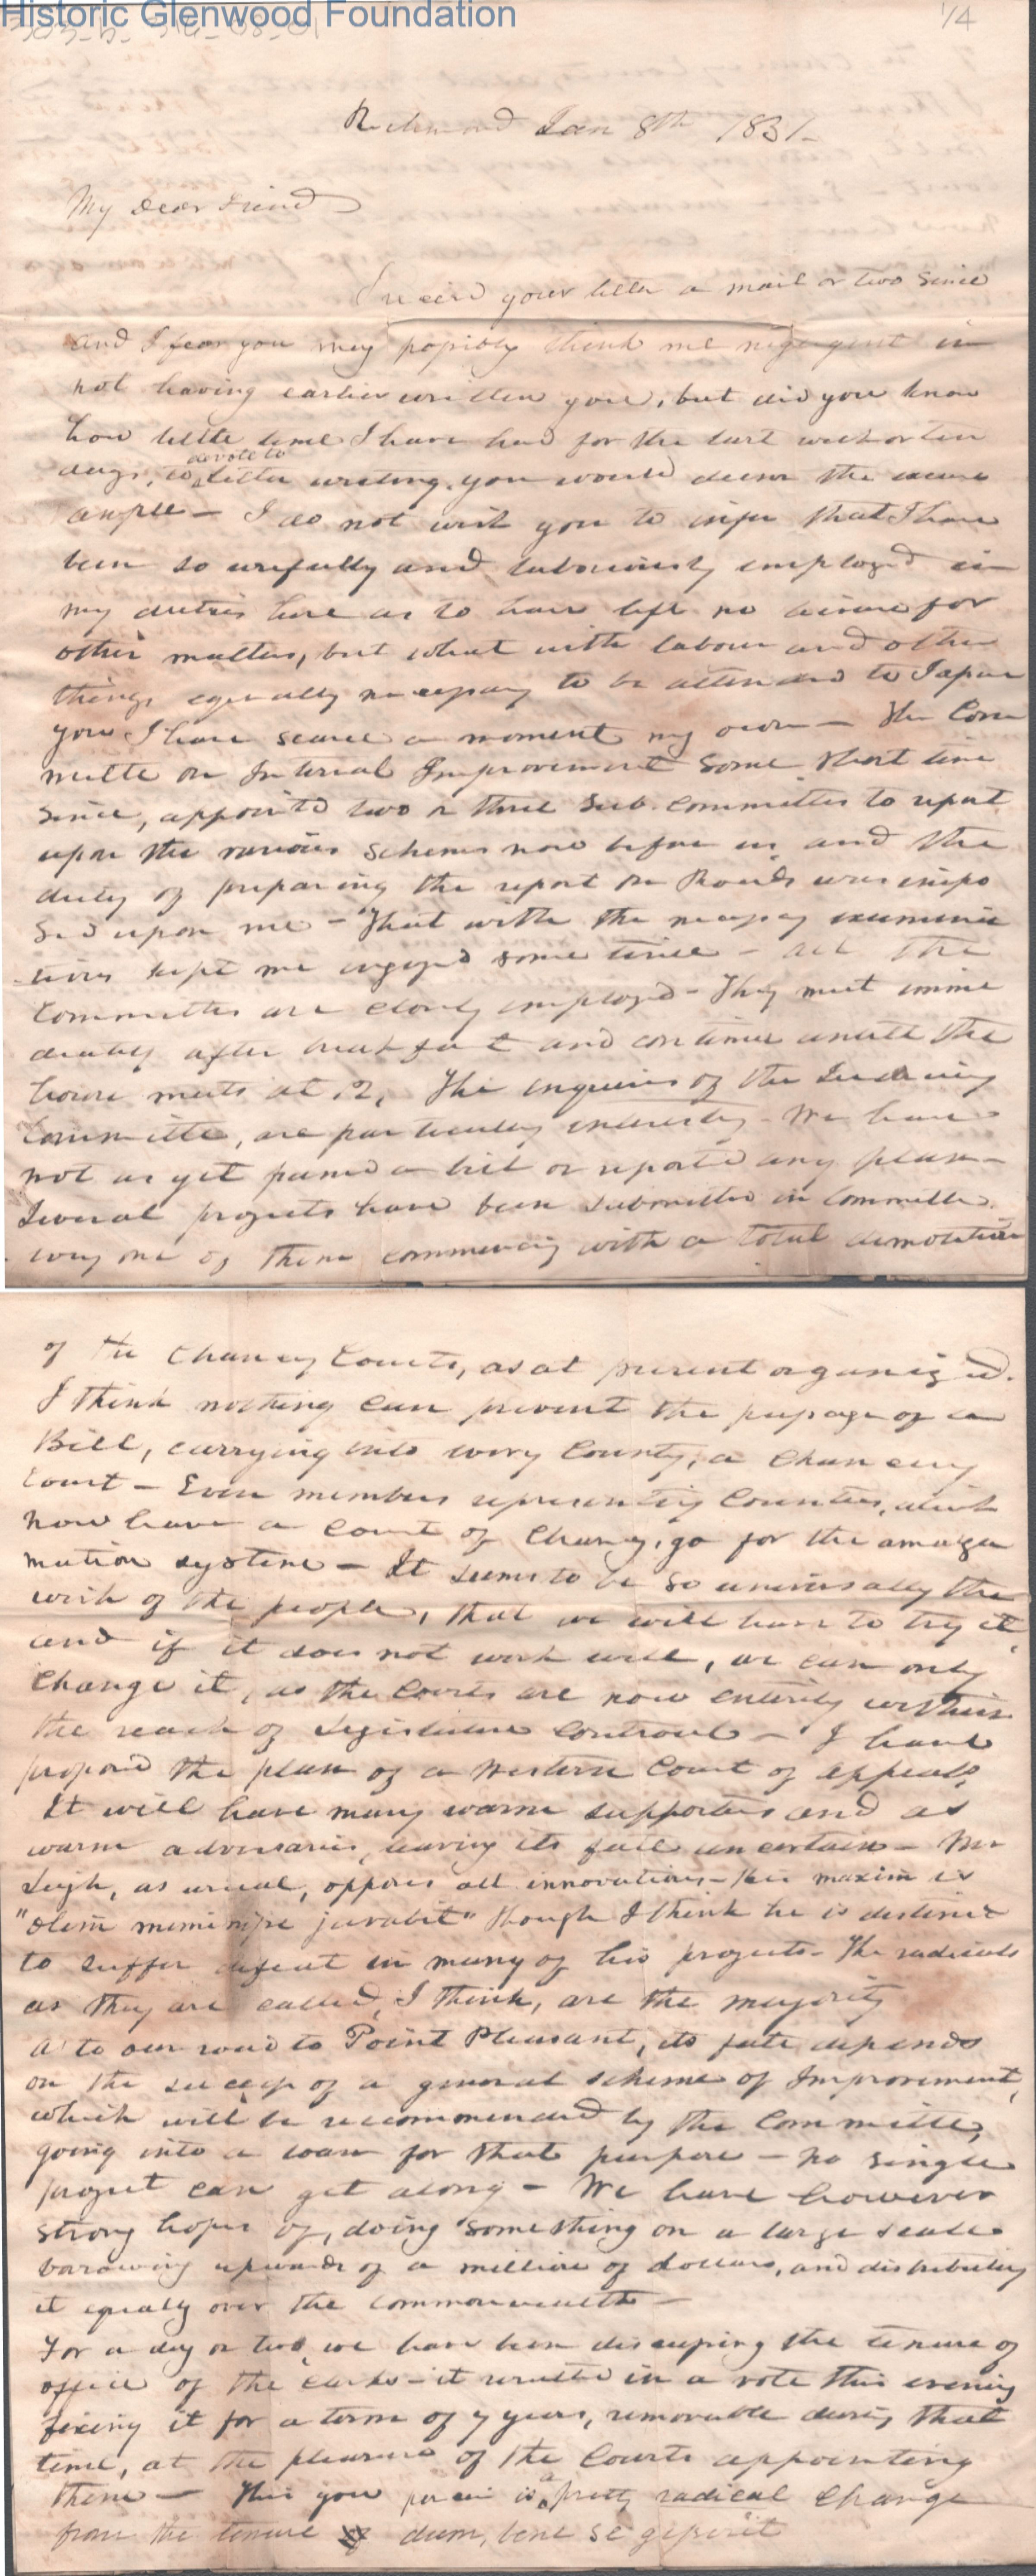 Historic Glenwood Foundation
1/4
Richmond Jan 8th 1831-
My dear friend
I receivd your letter a mail or two since
and I fear you may possibly think me negligent in
not having earlier written you, but did you know
how little time I have had for the last week or ten
devote to
days, to letter writing, you would deem the excuse
ample - I do not wish you to infer that I have
been so usefully and laboriously employed in
my duties here as to have left no leisure for
other matters, but what with labour and other
things equally necessary to be attended to I assure
you I have scarce a moment my own - The Com
mittee on Internal Improvement some short time
since, appointd two or three sub. Committees to report
upon the various schemes now before us and the
duty of preparing the report on Roads was impo
sed upon me - That with the necessary examina
-tions kept me engaged some time - all the
Committees are closely employed - They meet imme
diately after breakfast and continue untill the
house meets at 12, The inquiries of the Judiciary
Committee, are particularly interesting - We have
not as yet passed a bill or reported any plan -
Several projects have been submitted in Committee.
every one of them commencing with a total demolition
of the Chancery Courts, as at present organized.
I think nothing can prevent the passage of a
Bill, carrying into every County, a Chancery
Court - Even members representing Counties, which
now have a Court of Chancery, go for the amalga
mation system - It seems to be so universally the
wish of the people, that we will have to try it,
and if it does not work well, we can only
change it, as the Courts are now entirely within
the reach of legislative controul - I have
proposed the plan of a Western Court of appeals,
It will have many warm supporters and as
warm adversaries, leaving its fate uncertain - Mr
Leigh, as usual, opposes all innovations - his maxim is
"olim meminisse juvabit" though I think he is destined
to suffer defeat in many of his projects - The radicals
as they are called, I think, are the majority
As to our road to Point Pleasant, its fate depends
on the success of a general scheme of Improvement,
which will be recommended by the Committee,
going into a loan for that purpose - no single
project can get along - We have however
strong hopes of, doing something on a large scale
borrowing upwards of a million of dollars, and distributing
it equally over the Commonwealth -
For a day or two, we have been discussing the tenure of
office of the clerks - it resulted in a vote this evening
fixing it for a term of 7 years, removable during that
time, at the pleasure of the Courts appointing
them - This you perceive is a pretty radical change
from the tenure of dum, bene se gesserit